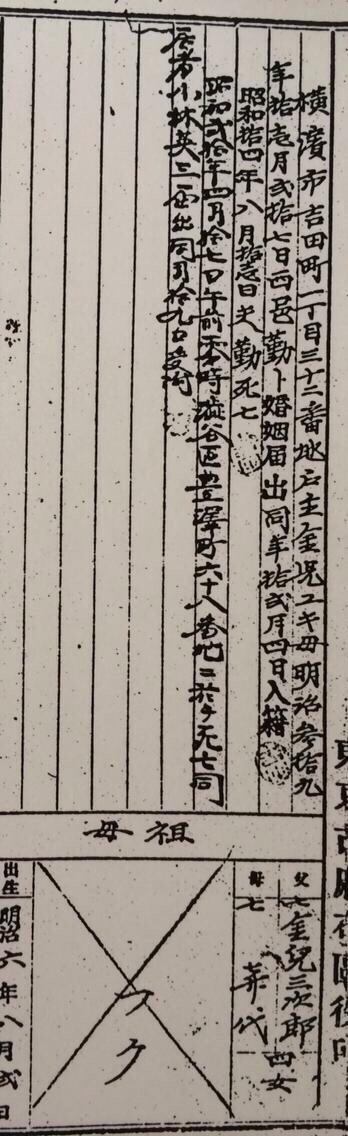 横濱市吉田町一丁目三十二番地戸主金児ユキ母明治参拾九
年拾壱月弐拾七日西邑勤ト婚姻届出同年拾弐月四日入籍
昭和拾四年八月拾壱日夫勤死亡
昭和弐拾年四月拾七日午前零時澁谷区豊澤町六十八番地ニ於テ死亡同
居者小林英三届出同月拾九日受附
祖母
父
亡金児三次郎
四女
母
亡
フク
出生
明治六年八月弐日